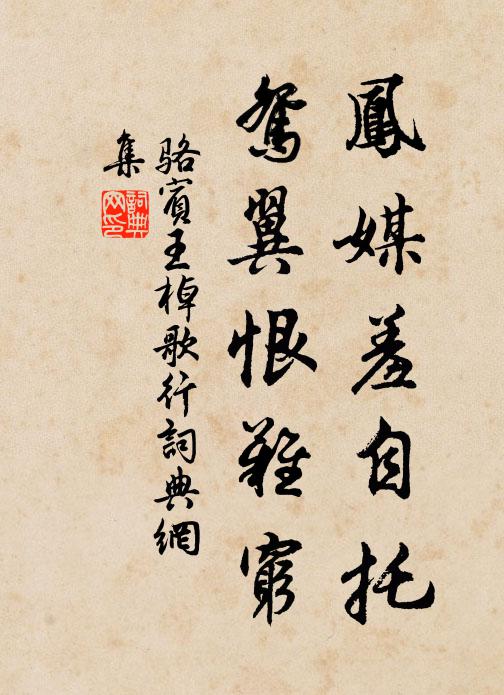 鳳媒羞自托
鴛翼恨難窮
駱賓王棹歌行詞典網
集
詞典
网印